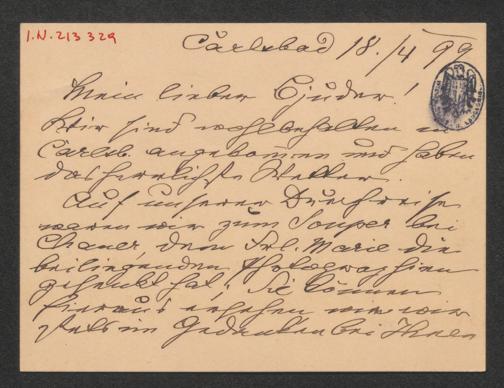 I.N. 213 329
Carlsbad 18./4 99
Mein lieber !
Wir sind wohlbehalten in
Carlsb. angekommen und haben
das herrlichste Wetter.
Auf unserer Durchreise
waren wir zum Souper bei
dem Frl. Marie die
beiliegenden Photographien
geschenkt hat; Sie können
hieraus ersehen, wie wir
stets in Gedanken bei Ihnen